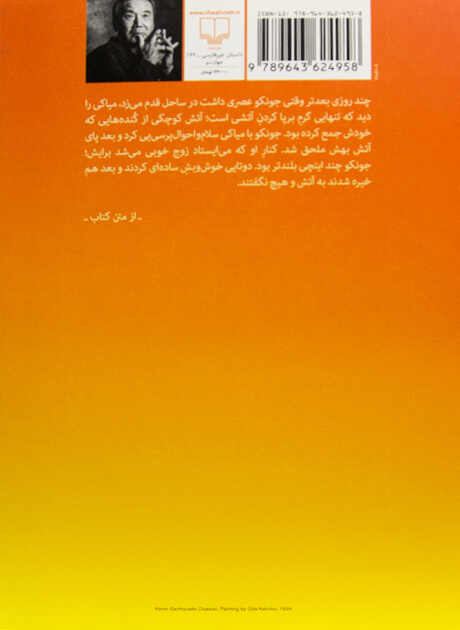 www.cheshmeh.ir
ISBN-13: 978-964-362-495-8
داستان غیرفارسی ـ ۱۶۲
9 789643 624958
چند روزی بعدتر وقتی جونکو عصری داشت در ساحل قدم می‌زد، میاکی را
دید که تنهایی گرمِ برپا کردنِ آتشی است؛ آتش کوچکی از کُنده‌هایی که
خودش جمع کرده بود. جونکو با میاکی سلام‌واحوال‌پرسی‌یی کرد و بعد پای
آتش بهش ملحق شد. کنارِ او که می‌ایستاد زوج خوبی می‌شد برایش؛
جونکو چند اینچی بلندتر بود. دوتایی خوش‌وبشِ ساده‌ای کردند و بعد هم
خیره شدند به آتش و هیچ نگفتند.
ـ از متن کتاب ـ
Kanto Earthquake Disaster, Painting by Oda Kancho, 1924